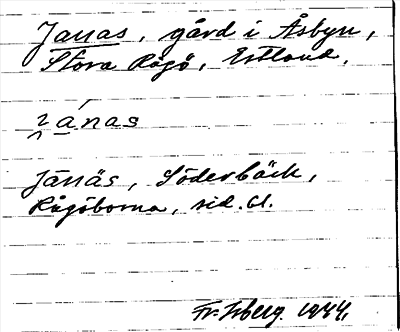 Janas, gård i Åsbyn,
Stora Rågö, Estland.
ɿánas
Jänäs, Söderbäck,
Rågöborna, sid. 61.
Fr. Isberg. 1944.